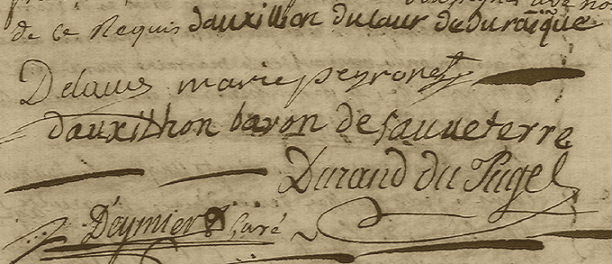 de ce Requis dauxillon dulaur deduranque
Delaur marie peyronet
dauxilhon baron de sauveterre
Durand du Puget
Deymier Curé